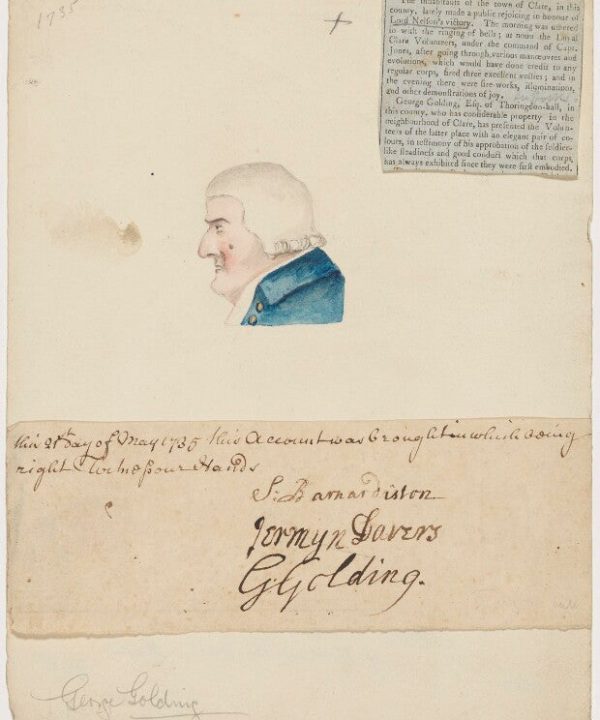 1735
The inhabitants of the town of Clare, in this
county, lately made a public rejoicing in honour of
Lord Nelson's victory. The morning was ushered
in with the ringing of bells; at noon the Loyal
Clare Volunteers, under the command of Capt.
Jones, after going through various manœuvres and
evolutions, which would have done credit to any
regular corps, fired three excellent vollies; and in
the evening there were fire-works, illuminations,
and other demonstrations of joy.
George Golding, Esq. of Thorington-hall, in
this county, who has considerable property in the
neighbourhood of Clare, has presented the Volun-
teers of the latter place with an elegant pair of co-
lours, in testimony of his approbation of the soldier-
like steadiness and good conduct which that corps
has always exhibited since they were first embodied.
this 21th day of May 1735 this Account was brought in which being
right Wee our Hands
S: Barnardiston
Jermyn Davers
G: Golding.
George Golding